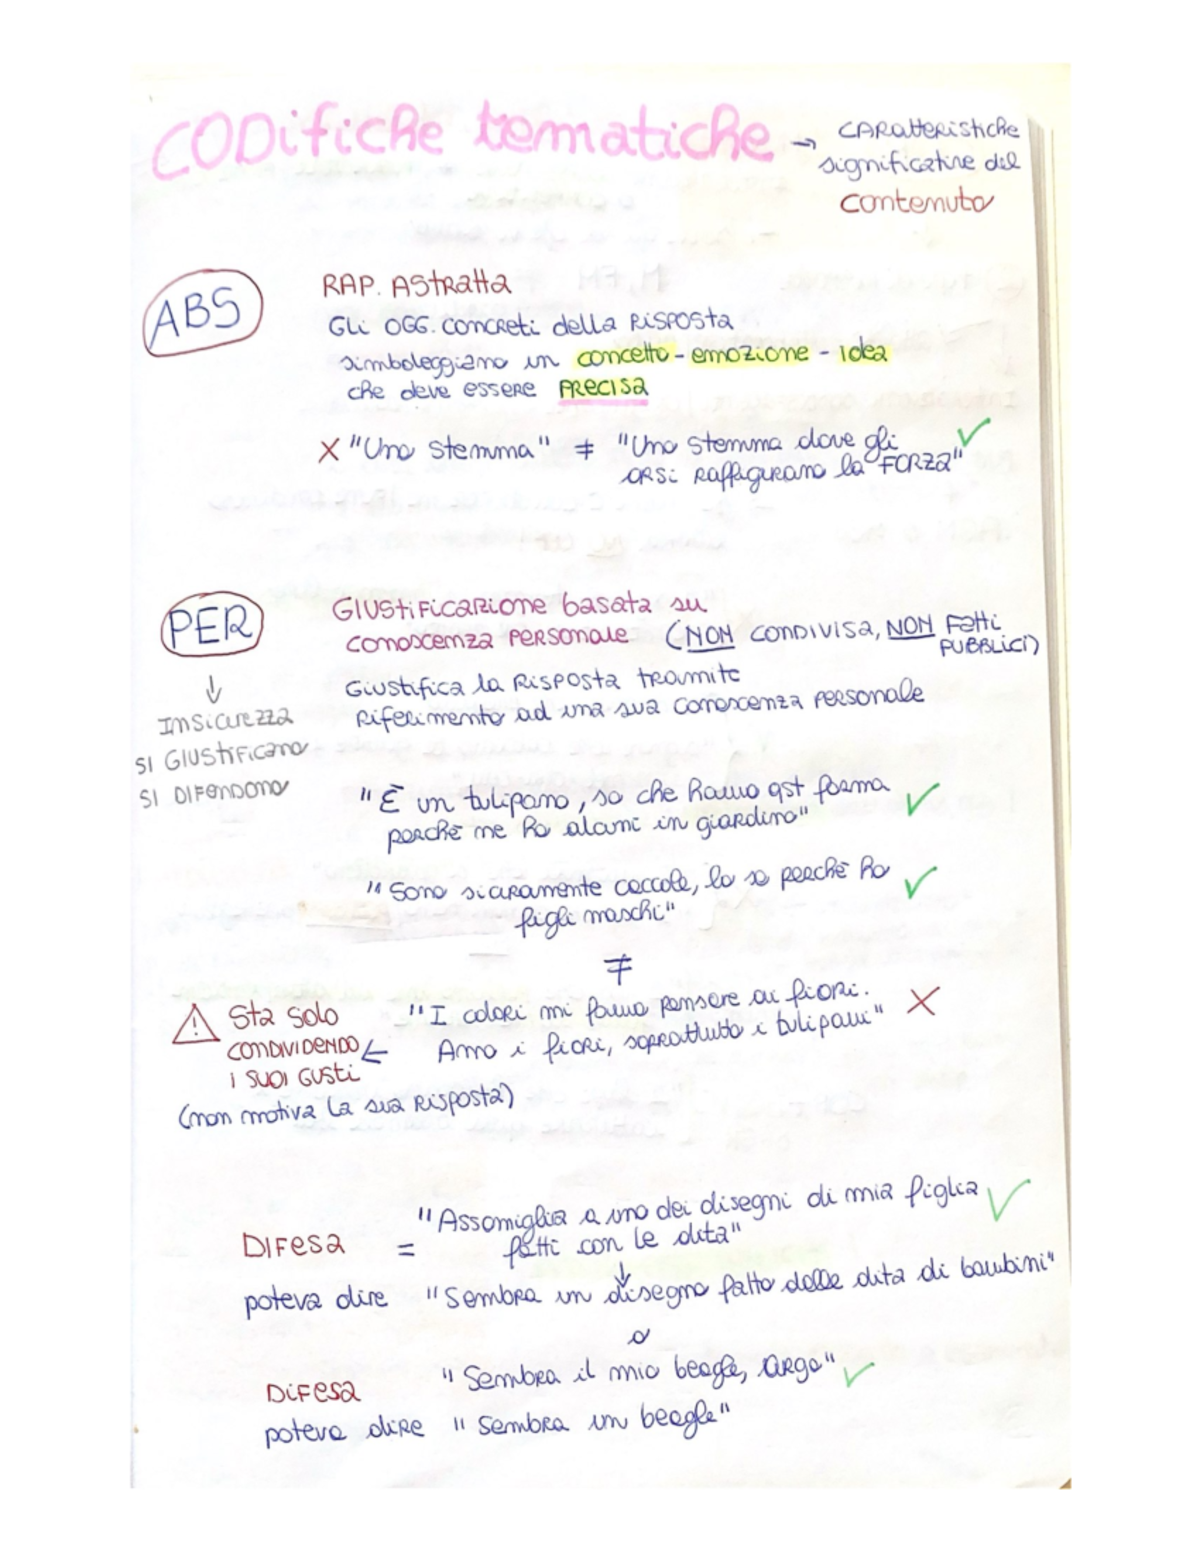 CODifiche tematiche → CARatteristiche
significative del
contenuto
ABS
RAP. Astratta
Gli OGG. concreti della Risposta
simboleggiano un concetto - emozione - idea
che deve essere PRecisa
X "Uno stemma" ≠ "Uno stemma dove gli ✓
orsi raffigurano la FORZA"
PER
GIUstificazione basata su
conoscenza personale (NON condivisa, NON Fatti
PUBBLICI)
↓
Giustifica la Risposta tramite
Riferimento ad una sua conoscenza personale
Insicurezza
SI GIUstificano
SI DIFendono
"È un tulipano, so che hanno qst forma ✓
perchè ne ho alcuni in giardino"
"Sono sicuramente coccole, lo so perchè ho ✓
figli maschi"
≠
⚠ Sta solo
CONDIVIDENDO ←
I SUOI GUSTI
(non motiva la sua Risposta)
"I colori mi fanno pensare ai fiori. X
Amo i fiori, soprattutto i tulipani"
DIFesa = "Assomiglia a uno dei disegni di mia figlia ✓
fatti con le dita"
↓
poteva dire "Sembra un disegno fatto dalle dita di bambini"
o
DIFesa "Sembra il mio beagle, Argo" ✓
poteva dire "Sembra un beagle"